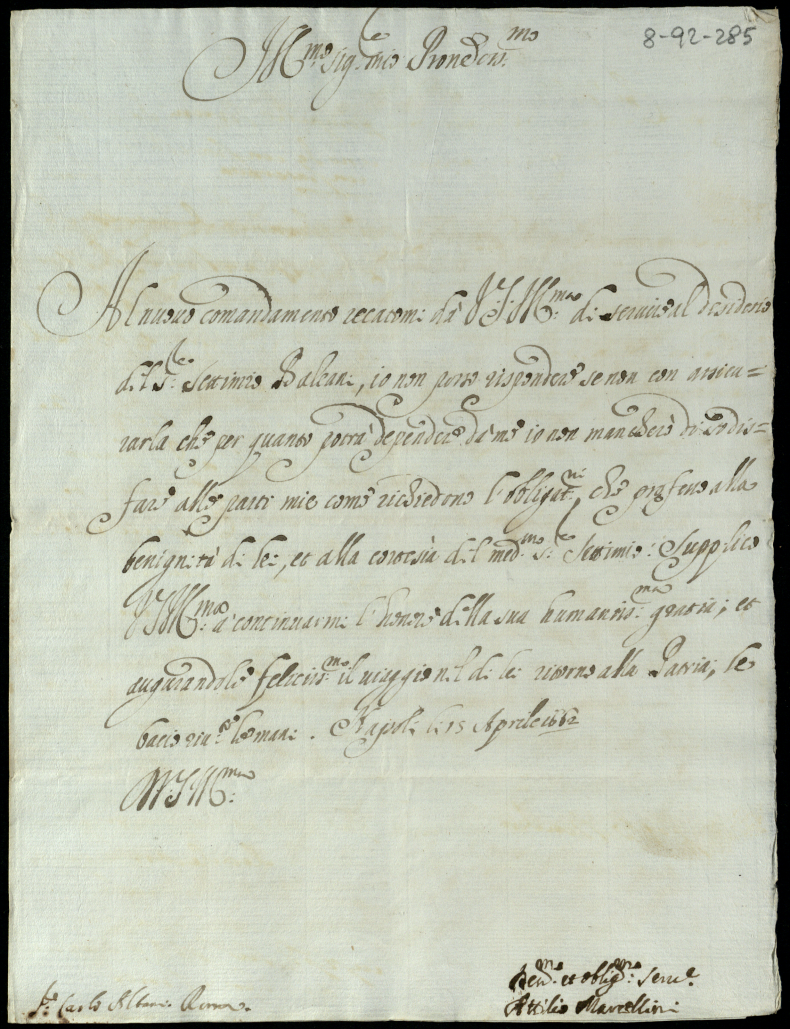 8-92-285
Ill.mo Sig.re mio Pron Oss.mo
Al nuovo comandamento recatomi da V.S. Ill.ma di servire al desiderio
del S.re Settimio Baleani, io non posso rispondere se non con assicu=
rarla che per quanto potrà dependere da me io non mancherò di sodis=
fare alle parti mie come richiedono l'obligat.ni, che professo alla
benignità di lei, et alla cortesia del med.mo S.re Settimio: Supplico
V.S. Ill.ma à continuarmi l'honore della sua humaniss.ma gratia; et
augurandole feliciss.mo il viaggio nel di lei ritorno alla Patria, le
bacio riu.te le mani. Napoli li 15 Aprile 1662
D.V.S. Ill.ma
S.r Carlo Albani Roma.
Dev.mo et oblig.mo Serv.e
Attilio Marcellini